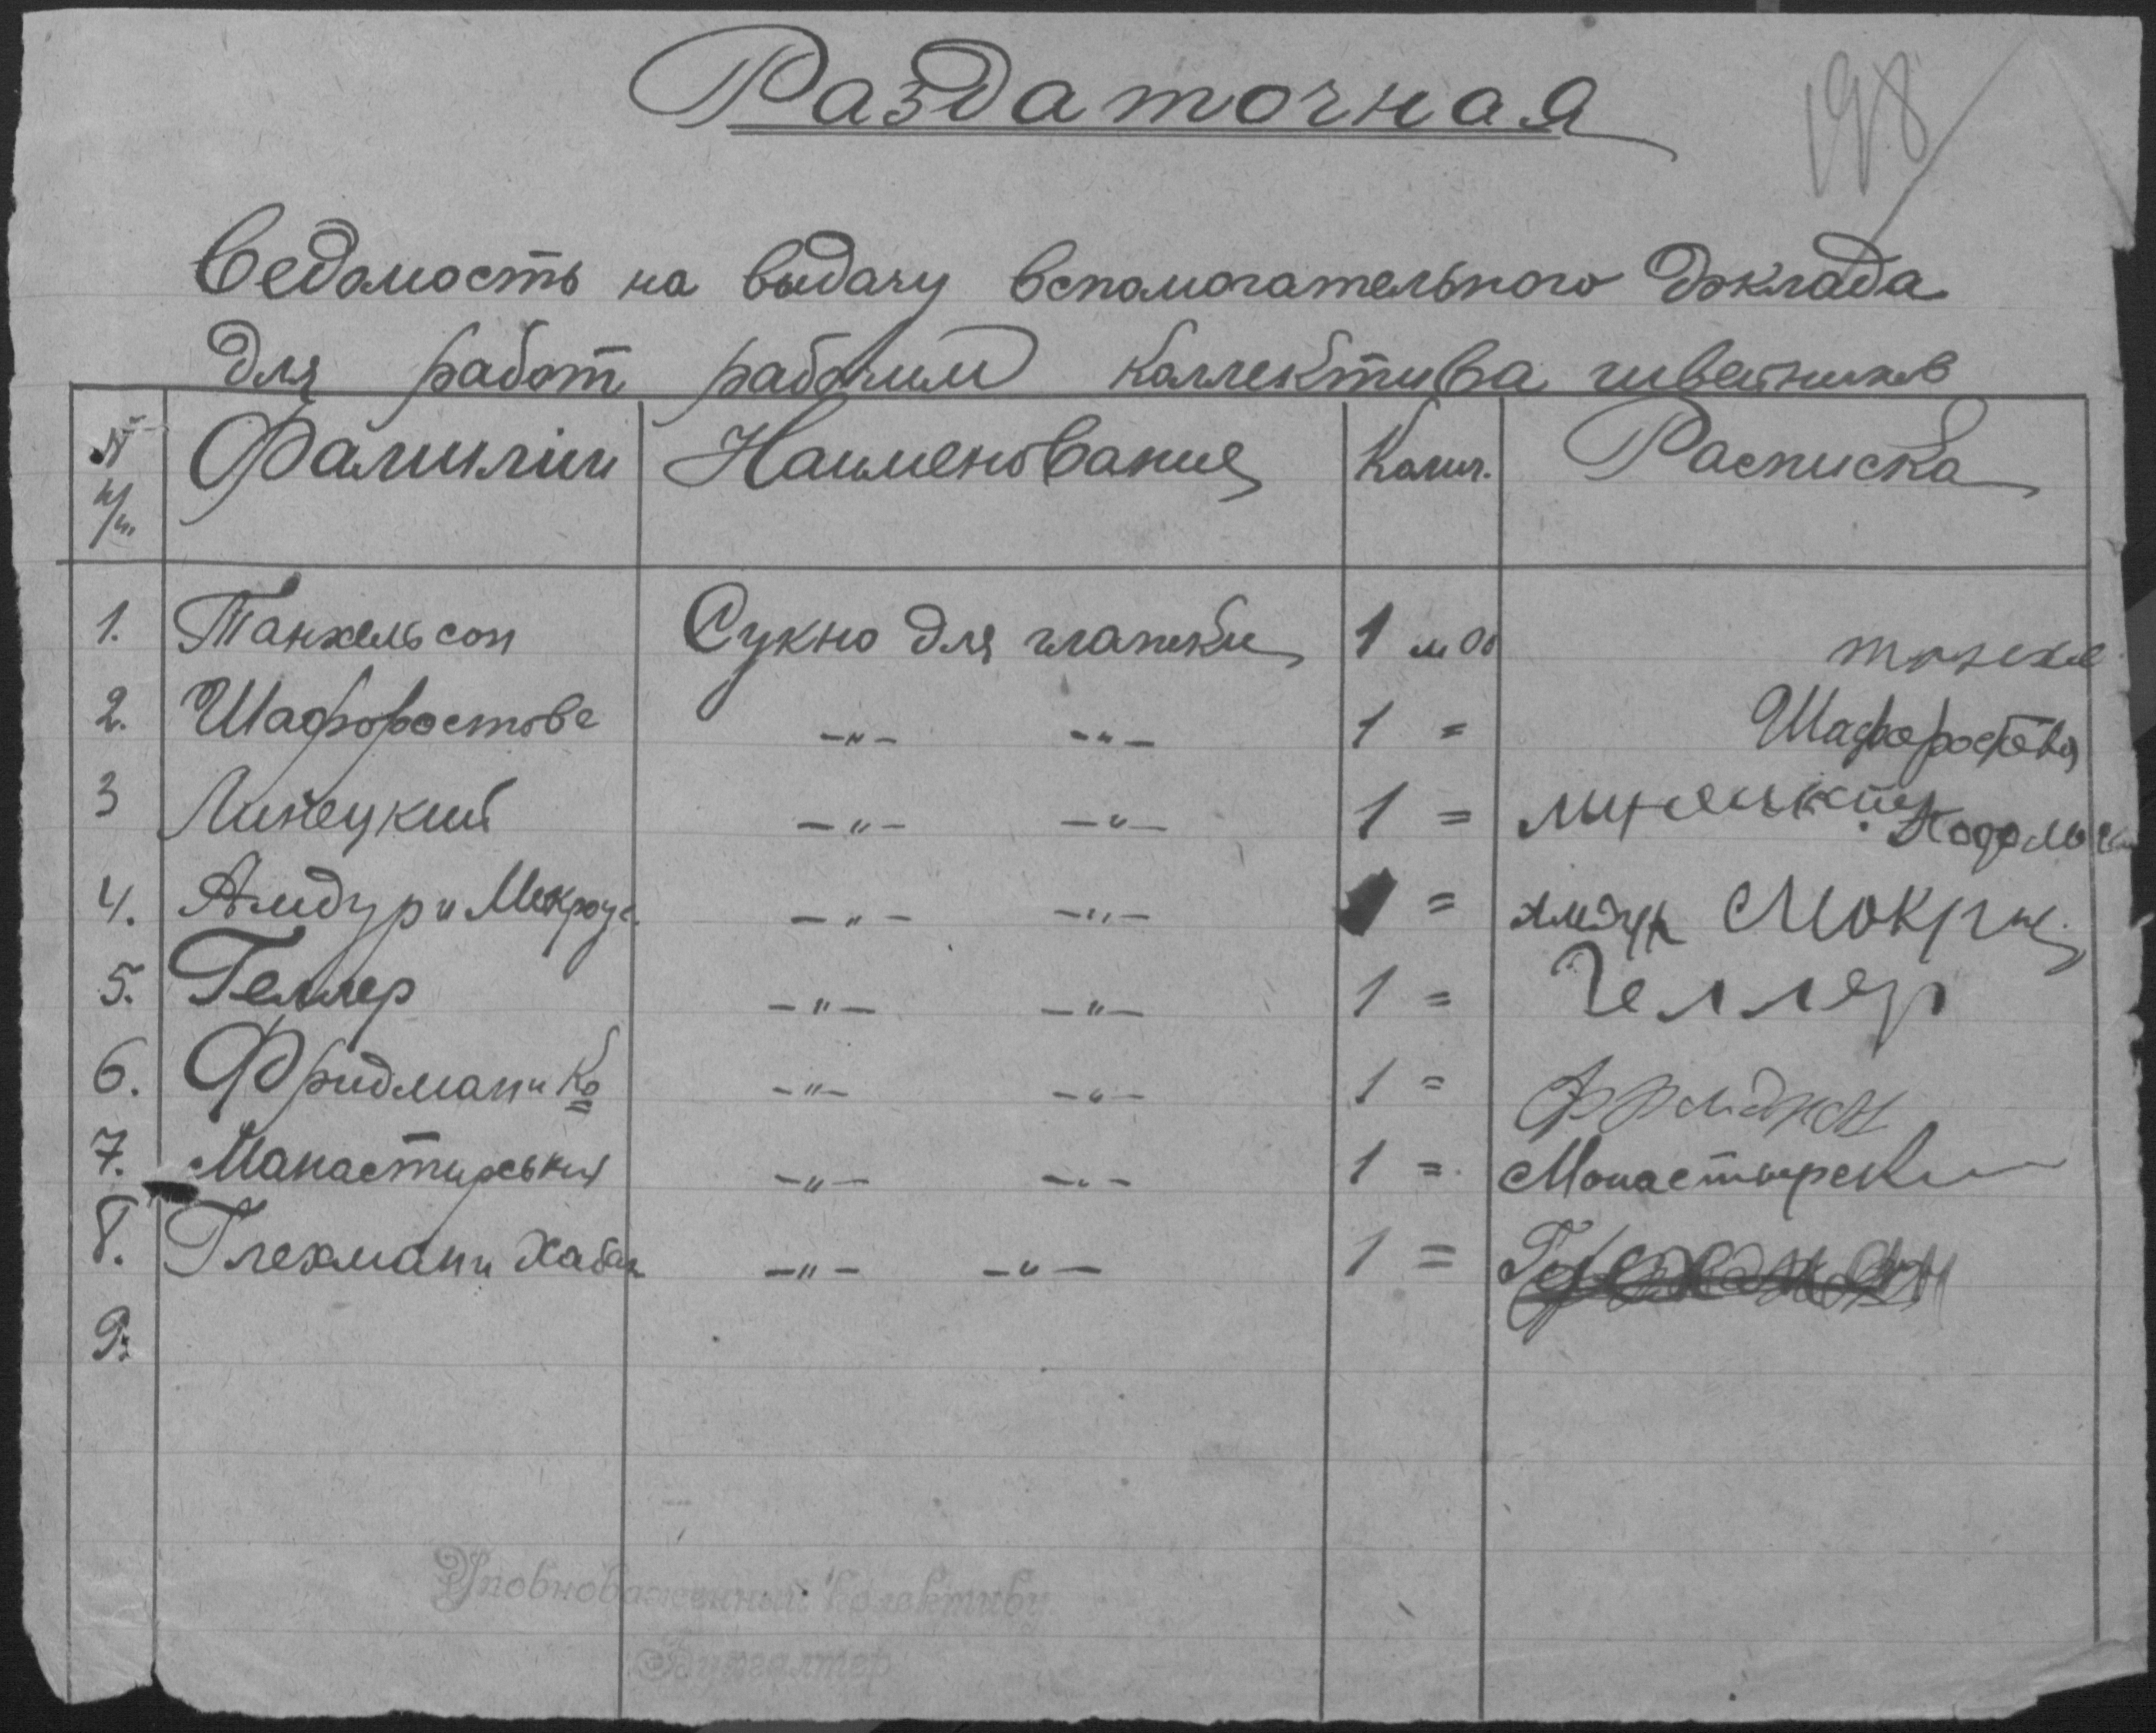 Раздаточная
198
Ведомость на выдачу вспомогательного доклада
для работ рабочим коллектива швейников
№ п/п. Фамилии Наименование Колич. Расписка
1. Танхельсон Сукно для глажки 1 м 00
2. Шафоростова -„- -„- 1 = Шафоростова
3 Линецкий -„- -„- 1 = Линецкий
4. Амдур и Мокроус -„- -„- 1 = Амдур Мокрус
5. Геллер -„- -„- 1 = Геллер
6. Фридман и Ко -„- -„- 1 = Фридман
7. Манастирський -„- -„- 1 = Монастырски
8. Глехман и Хабан -„- -„- 1 =
9.
Уповноваженний колективу
Бухгалтер